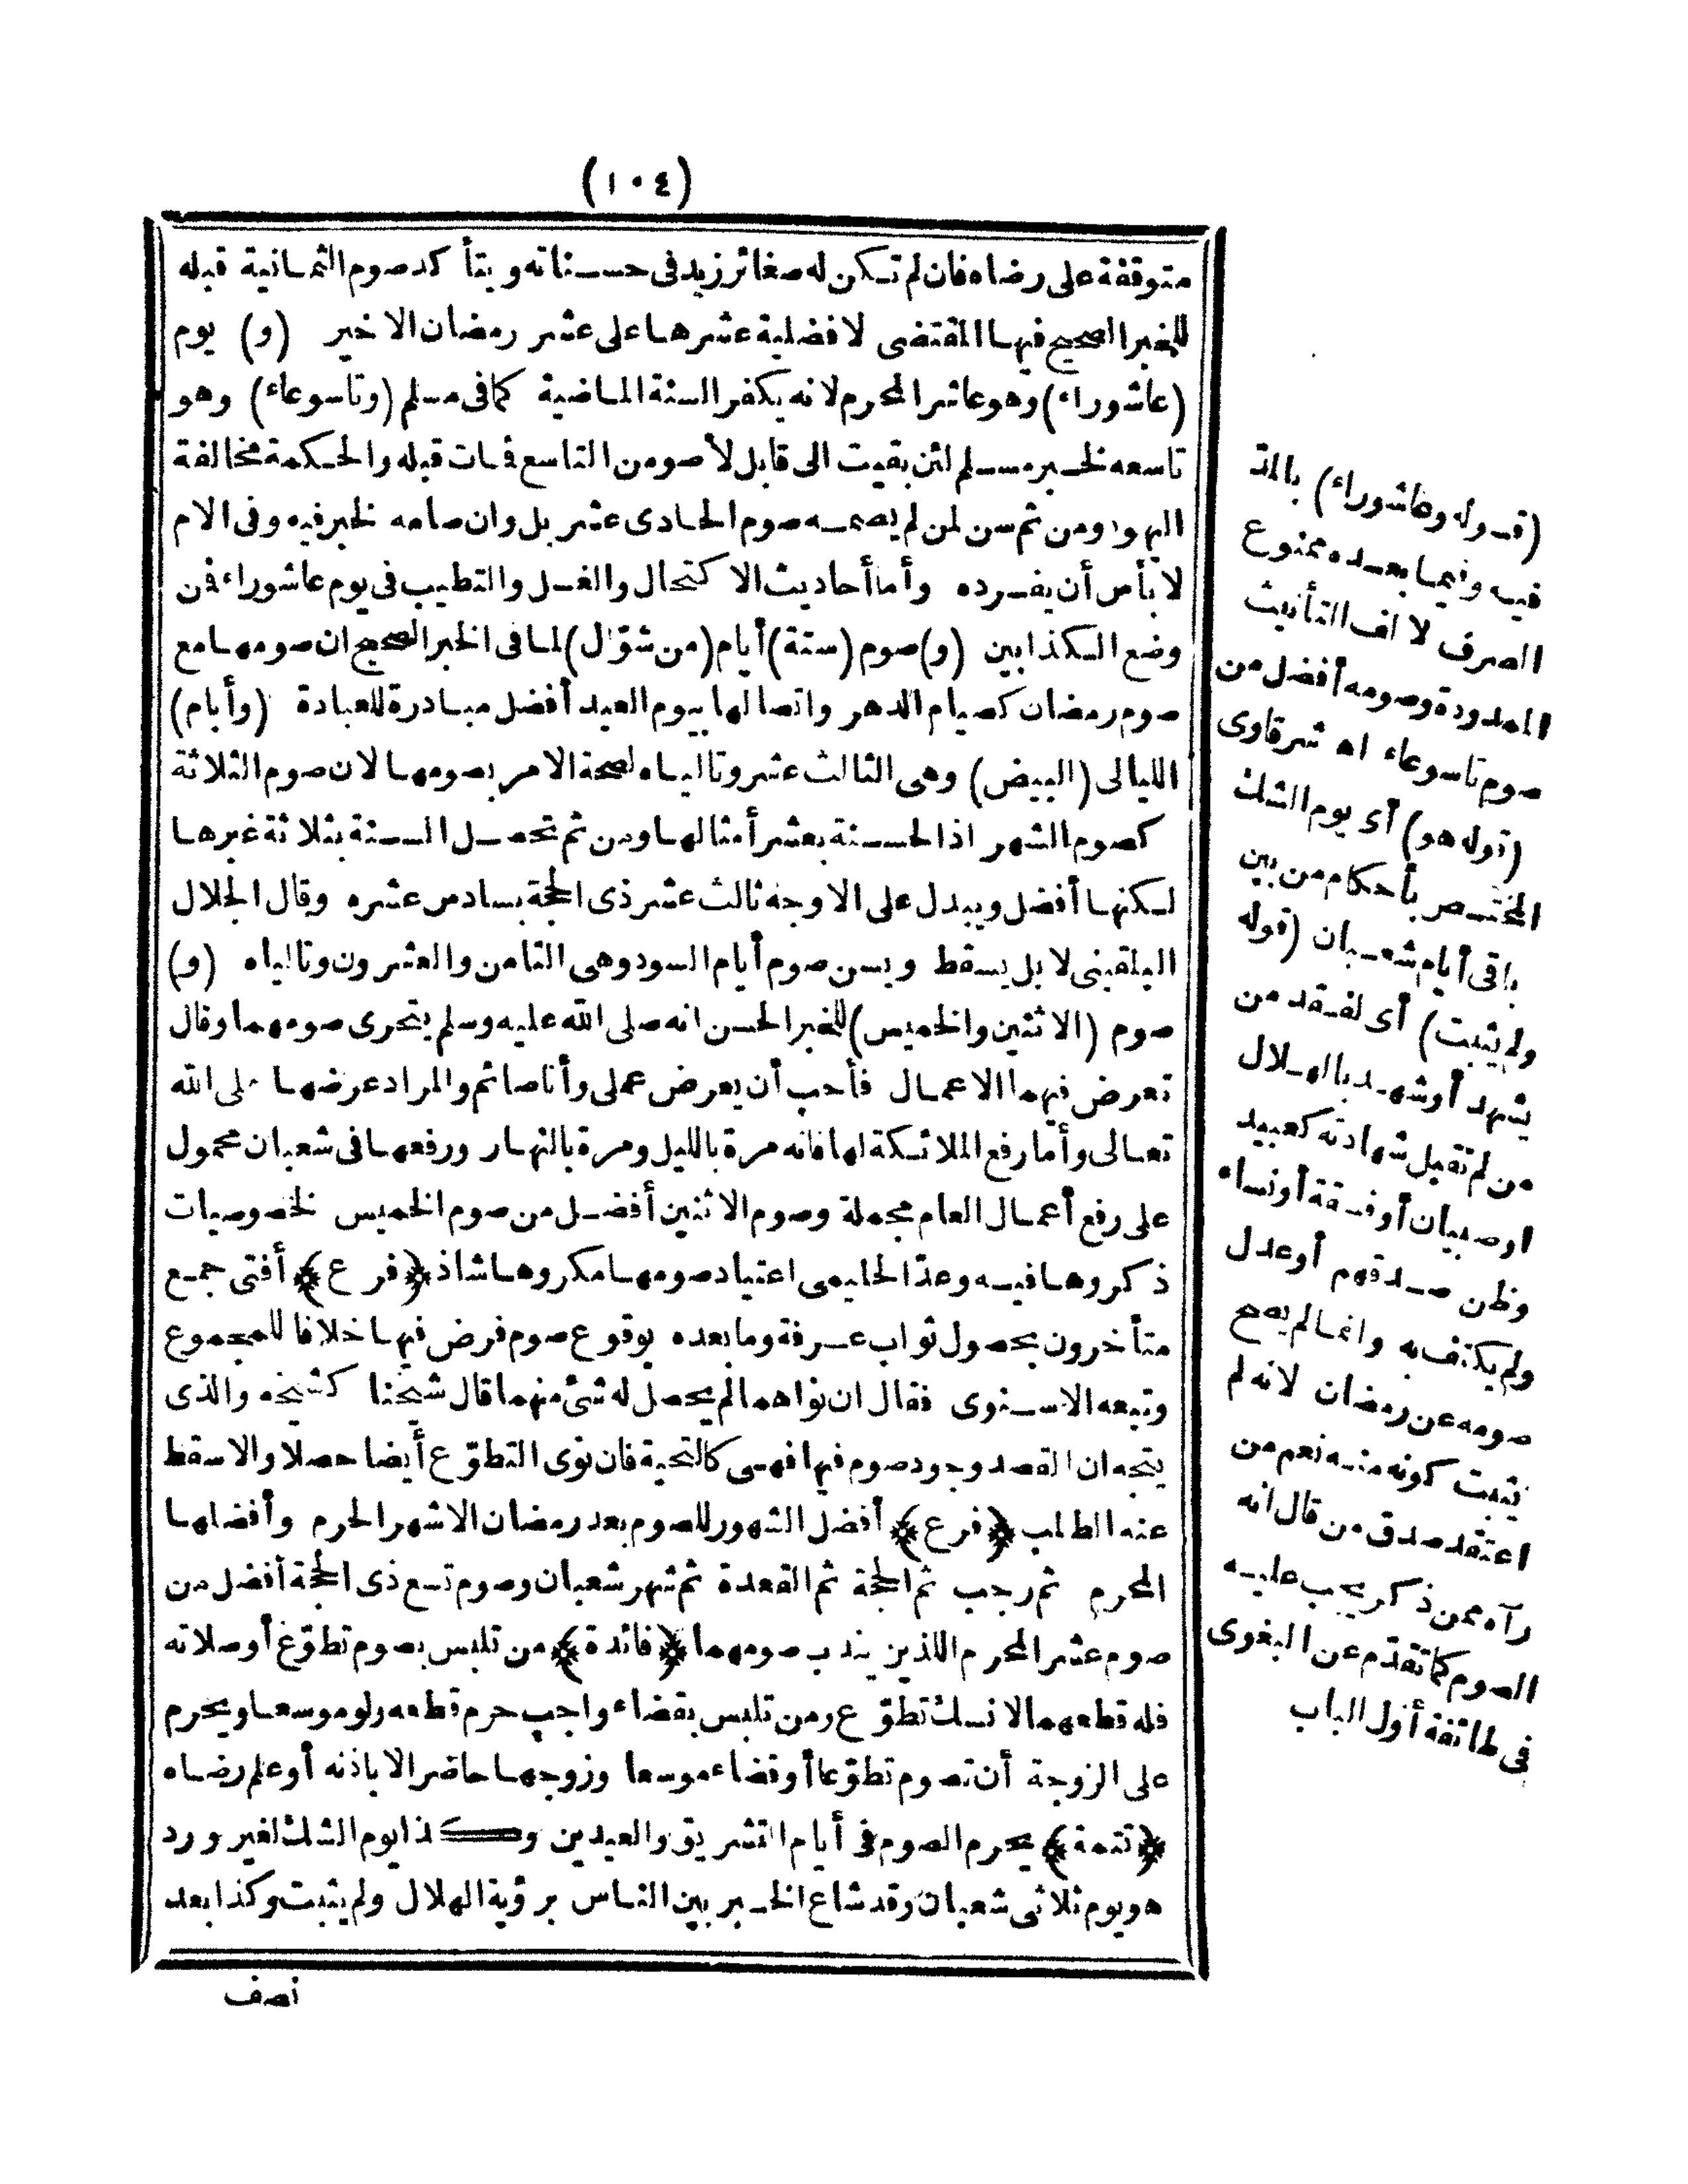 (١٠٤)
متوقفة على رضاه فان لم تكن له صغائر زيد فى حسناته ويتأكد صوم الثمانية قبله
للخبر الصحيح فيها المقتضى لافضلية عشرها على عشر رمضان الاخير (و) يوم
(عاشوراء) وهو عاشر المحرم لانه يكفر السنة الماضية كما فى مسلم (وتاسوعاء) وهو
تاسعه لخبر مسلم لئن بقيت الى قابل لأصومن التاسع فمات قبله والحكمة مخالفة
اليهود ومن ثم سن لمن لم يصمه صوم الحادى عشر بل وان صامه لخبر فيه وفى الام
لا بأس أن يفرده وأما أحاديث الاكتحال والغسل والتطيب فى يوم عاشوراء فمن
وضع الكذابين (و) صوم (ستة) أيام (من شوّال) لما فى الخبر الصحيح ان صومها مع
صوم رمضان كصيام الدهر واتصالها بيوم العيد أفضل مبادرة للعبادة (وأيام)
الليالى (البيض) وهى الثالث عشر وتالياه لصحة الامر بصومها لان صوم الثلاثة
كصوم الشهر اذ الحسنة بعشر أمثالها ومن ثم تحصل السنة بثلاثة غيرها
لكنها أفضل ويبدل على الاوجه ثالث عشر ذى الحجة بسادس عشره وقال الجلال
البلقينى لا بل يسقط ويسن صوم أيام السود وهى الثامن والعشرون وتالياه (و)
صوم (الاثنين والخميس) للخبر الحسن انه صلى الله عليه وسلم يتحرى صومهما وقال
تعرض فيهما الاعمال فأحب أن يعرض عملى وأنا صائم والمراد عرضها على الله
تعالى وأما رفع الملائكة لها فانه مرة بالليل ومرة بالنهار ورفعها فى شعبان محمول
على رفع أعمال العام مجملة وصوم الاثنين أفضل من صوم الخميس لخصوصيات
ذكروها فيه وعدّ الحليمى اعتياد صومهما مكروها شاذ ﴿فرع﴾ أفتى جمع
متأخرون بحصول ثواب عرفة وما بعده بوقوع صوم فرض فيها خلافا للمجموع
وتبعه الاسنوى فقال ان نواهما لم يحصل له شئ منهما قال شيخنا كشيخه والذى
يتجه ان القصد وجود صوم فيها فهى كالتحية فان نوى التطوّع أيضا حصلا والا سقط
عنه الطلب ﴿فرع﴾ أفضل الشهور للصوم بعد رمضان الاشهر الحرم وأفضلها
المحرم ثم رجب ثم الحجة ثم القعدة ثم شهر شعبان وصوم تسع ذى الحجة أفضل من
صوم عشر المحرم اللذين يندب صومهما ﴿فائدة﴾ من تلبس بصوم تطوّع أو صلاته
فله قطعهما لا نسك تطوّع ومن تلبس بقضاء واجب حرم قطعه ولو موسعا ويحرم
على الزوجة أن تصوم تطوّعا أو قضاء موسعا وزوجها حاضر الا باذنه أو علم رضاه
﴿تتمة﴾ يحرم الصوم فى أيام التشريق والعيدين وكذا يوم الشك لغير ورد
هو يوم ثلاثى شعبان وقد شاع الخبر بين الناس برؤية الهلال ولم يثبت وكذا بعد
نصف
(قوله وعاشوراء) بالمدّ
فيه وفيما بعده ممنوع
الصرف لالف التأنيث
الممدودة وصومه أفضل من
صوم تاسوعاء اه شرقاوى
(قوله هو) أى يوم الشك
المختص بأحكام من بين
باقى أيام شعبان (قوله
ولم يثبت) أى لفقد من
يشهد أو شهد بالهلال
من لم تقبل شهادته كعبيد
او صبيان أو فسقة أو نساء
وظن صدقهم أو عدل
ولم يكتف به وانما لم يصح
صومه عن رمضان لانه لم
يثبت كونه منه نعم من
اعتقد صدق من قال انه
رآه ممن ذكر يجب عليه
الصوم كما تقدّم عن البغوى
فى طائفة أوّل الباب